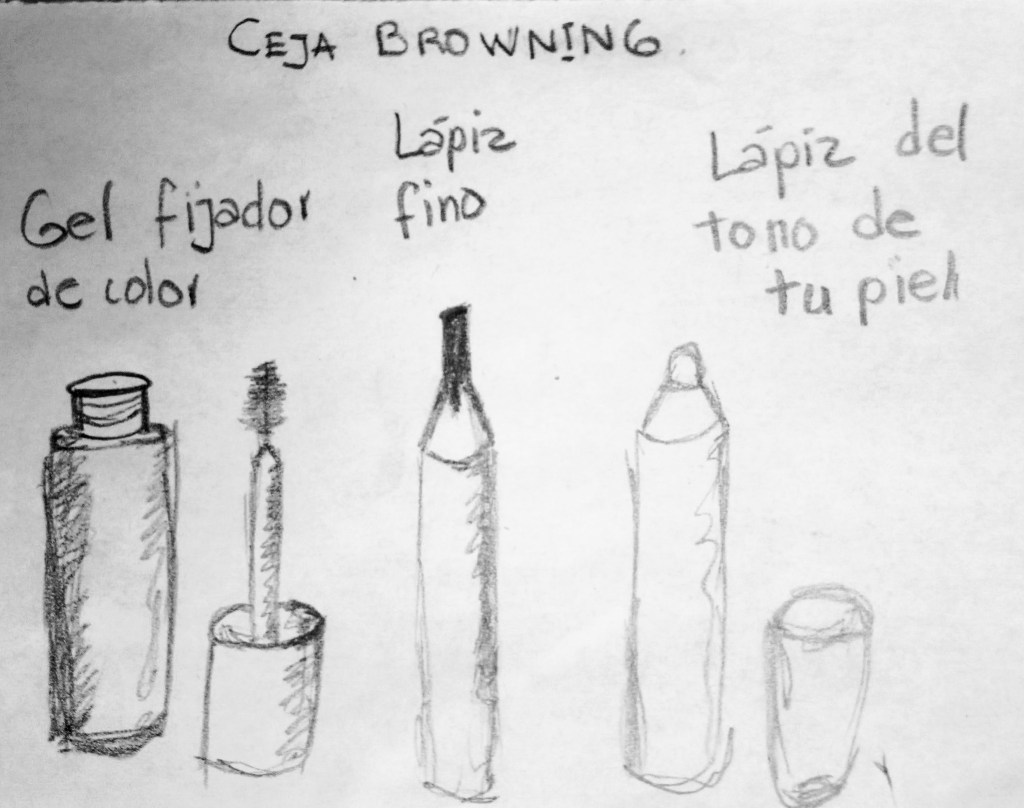 CEJA BROWNING.
Gel fijador
de color
Lápiz
fino
Lápiz del
tono de
tu piel